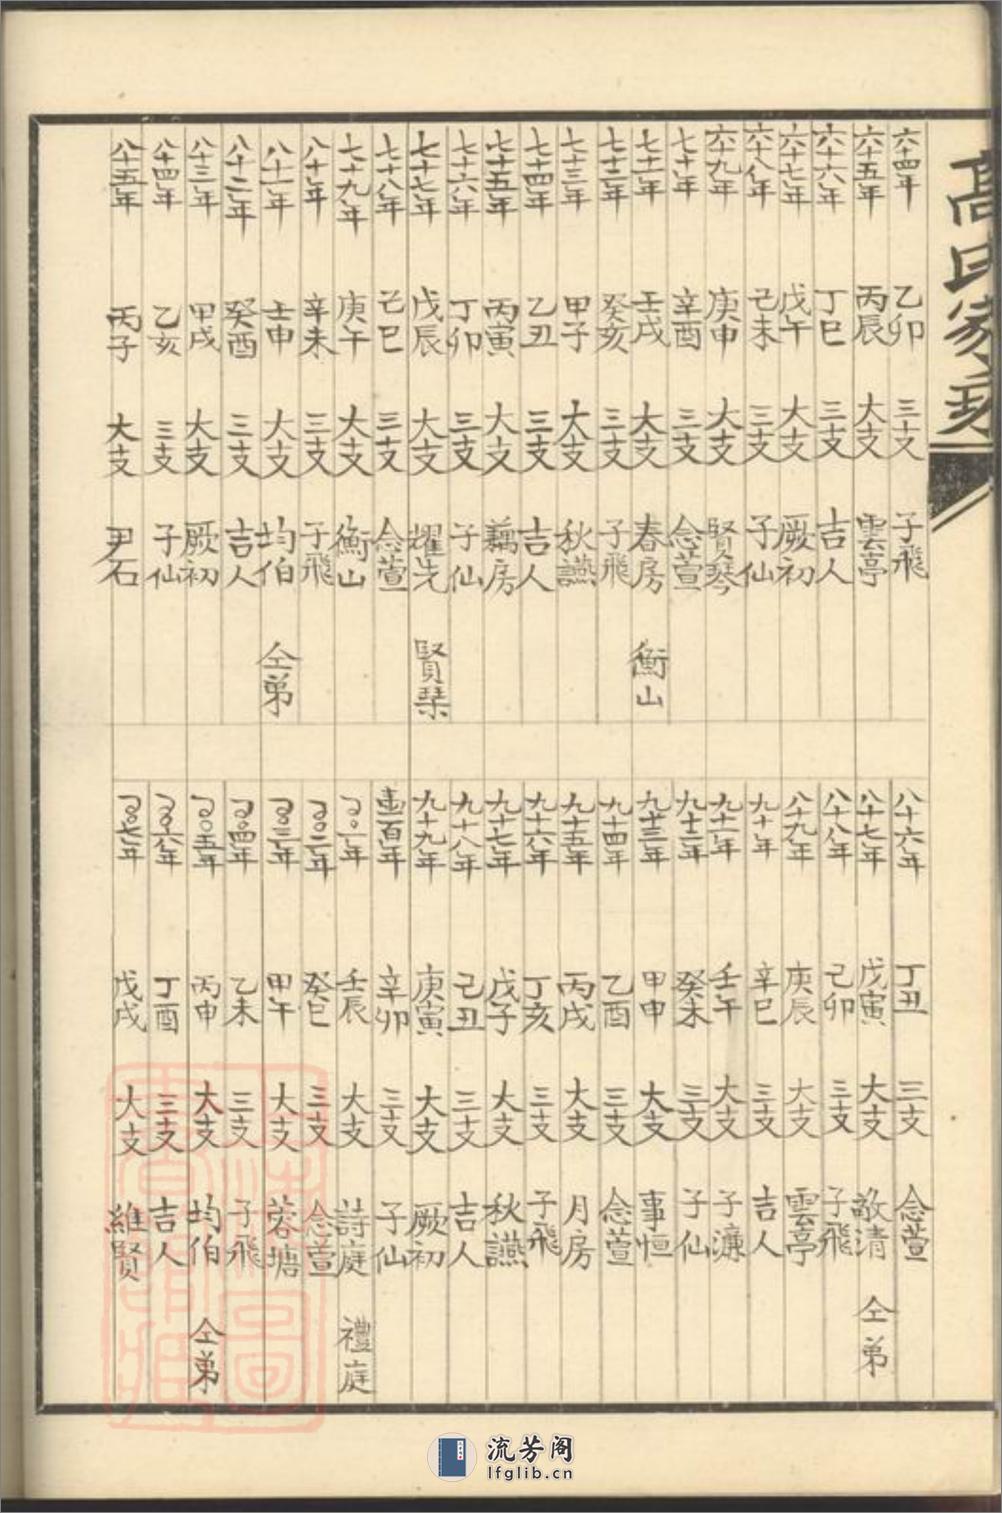 高氏家乘
六十四年 乙卯 三支 子飛
六十五年 丙辰 大支 雲亭
六十六年 丁巳 三支 吉人
六十七年 戊午 大支 厥初
六十八年 己未 三支 子仙
六十九年 庚申 大支 賢琴
七十年 辛酉 三支 念萱
七十一年 壬戌 大支 春房 衡山
七十二年 癸亥 三支 子飛
七十三年 甲子 大支 秋讌
七十四年 乙丑 三支 吉人
七十五年 丙寅 大支 藕房
七十六年 丁卯 三支 子仙
七十七年 戊辰 大支 耀先 賢琹
七十八年 己巳 三支 念萱
七十九年 庚午 大支 衡山
八十年 辛未 三支 子飛
八十一年 壬申 大支 均伯 仝弟
八十二年 癸酉 三支 吉人
八十三年 甲戌 大支 厥初
八十四年 乙亥 三支 子仙
八十五年 丙子 大支 尹石
八十六年 丁丑 三支 念萱
八十七年 戊寅 大支 敬清 仝弟
八十八年 己卯 三支 子飛
八十九年 庚辰 大支 雲亭
九十年 辛巳 三支 吉人
九十一年 壬午 大支 子濂
九十二年 癸未 三支 子仙
九十三年 甲申 大支 事恒
九十四年 乙酉 三支 念萱
九十五年 丙戌 大支 月房
九十六年 丁亥 三支 子飛
九十七年 戊子 大支 秋讌
九十八年 己丑 三支 吉人
九十九年 庚寅 大支 厥初
壹百年 辛卯 三支 子仙
一〇一年 壬辰 大支 詩庭 禮庭
一〇二年 癸巳 三支 念萱
一〇三年 甲午 大支 蓉塘
一〇四年 乙未 三支 子飛
一〇五年 丙申 大支 均伯 仝弟
一〇六年 丁酉 三支 吉人
一〇七年 戊戌 大支 維賢
流芳阁
lfglib.cn